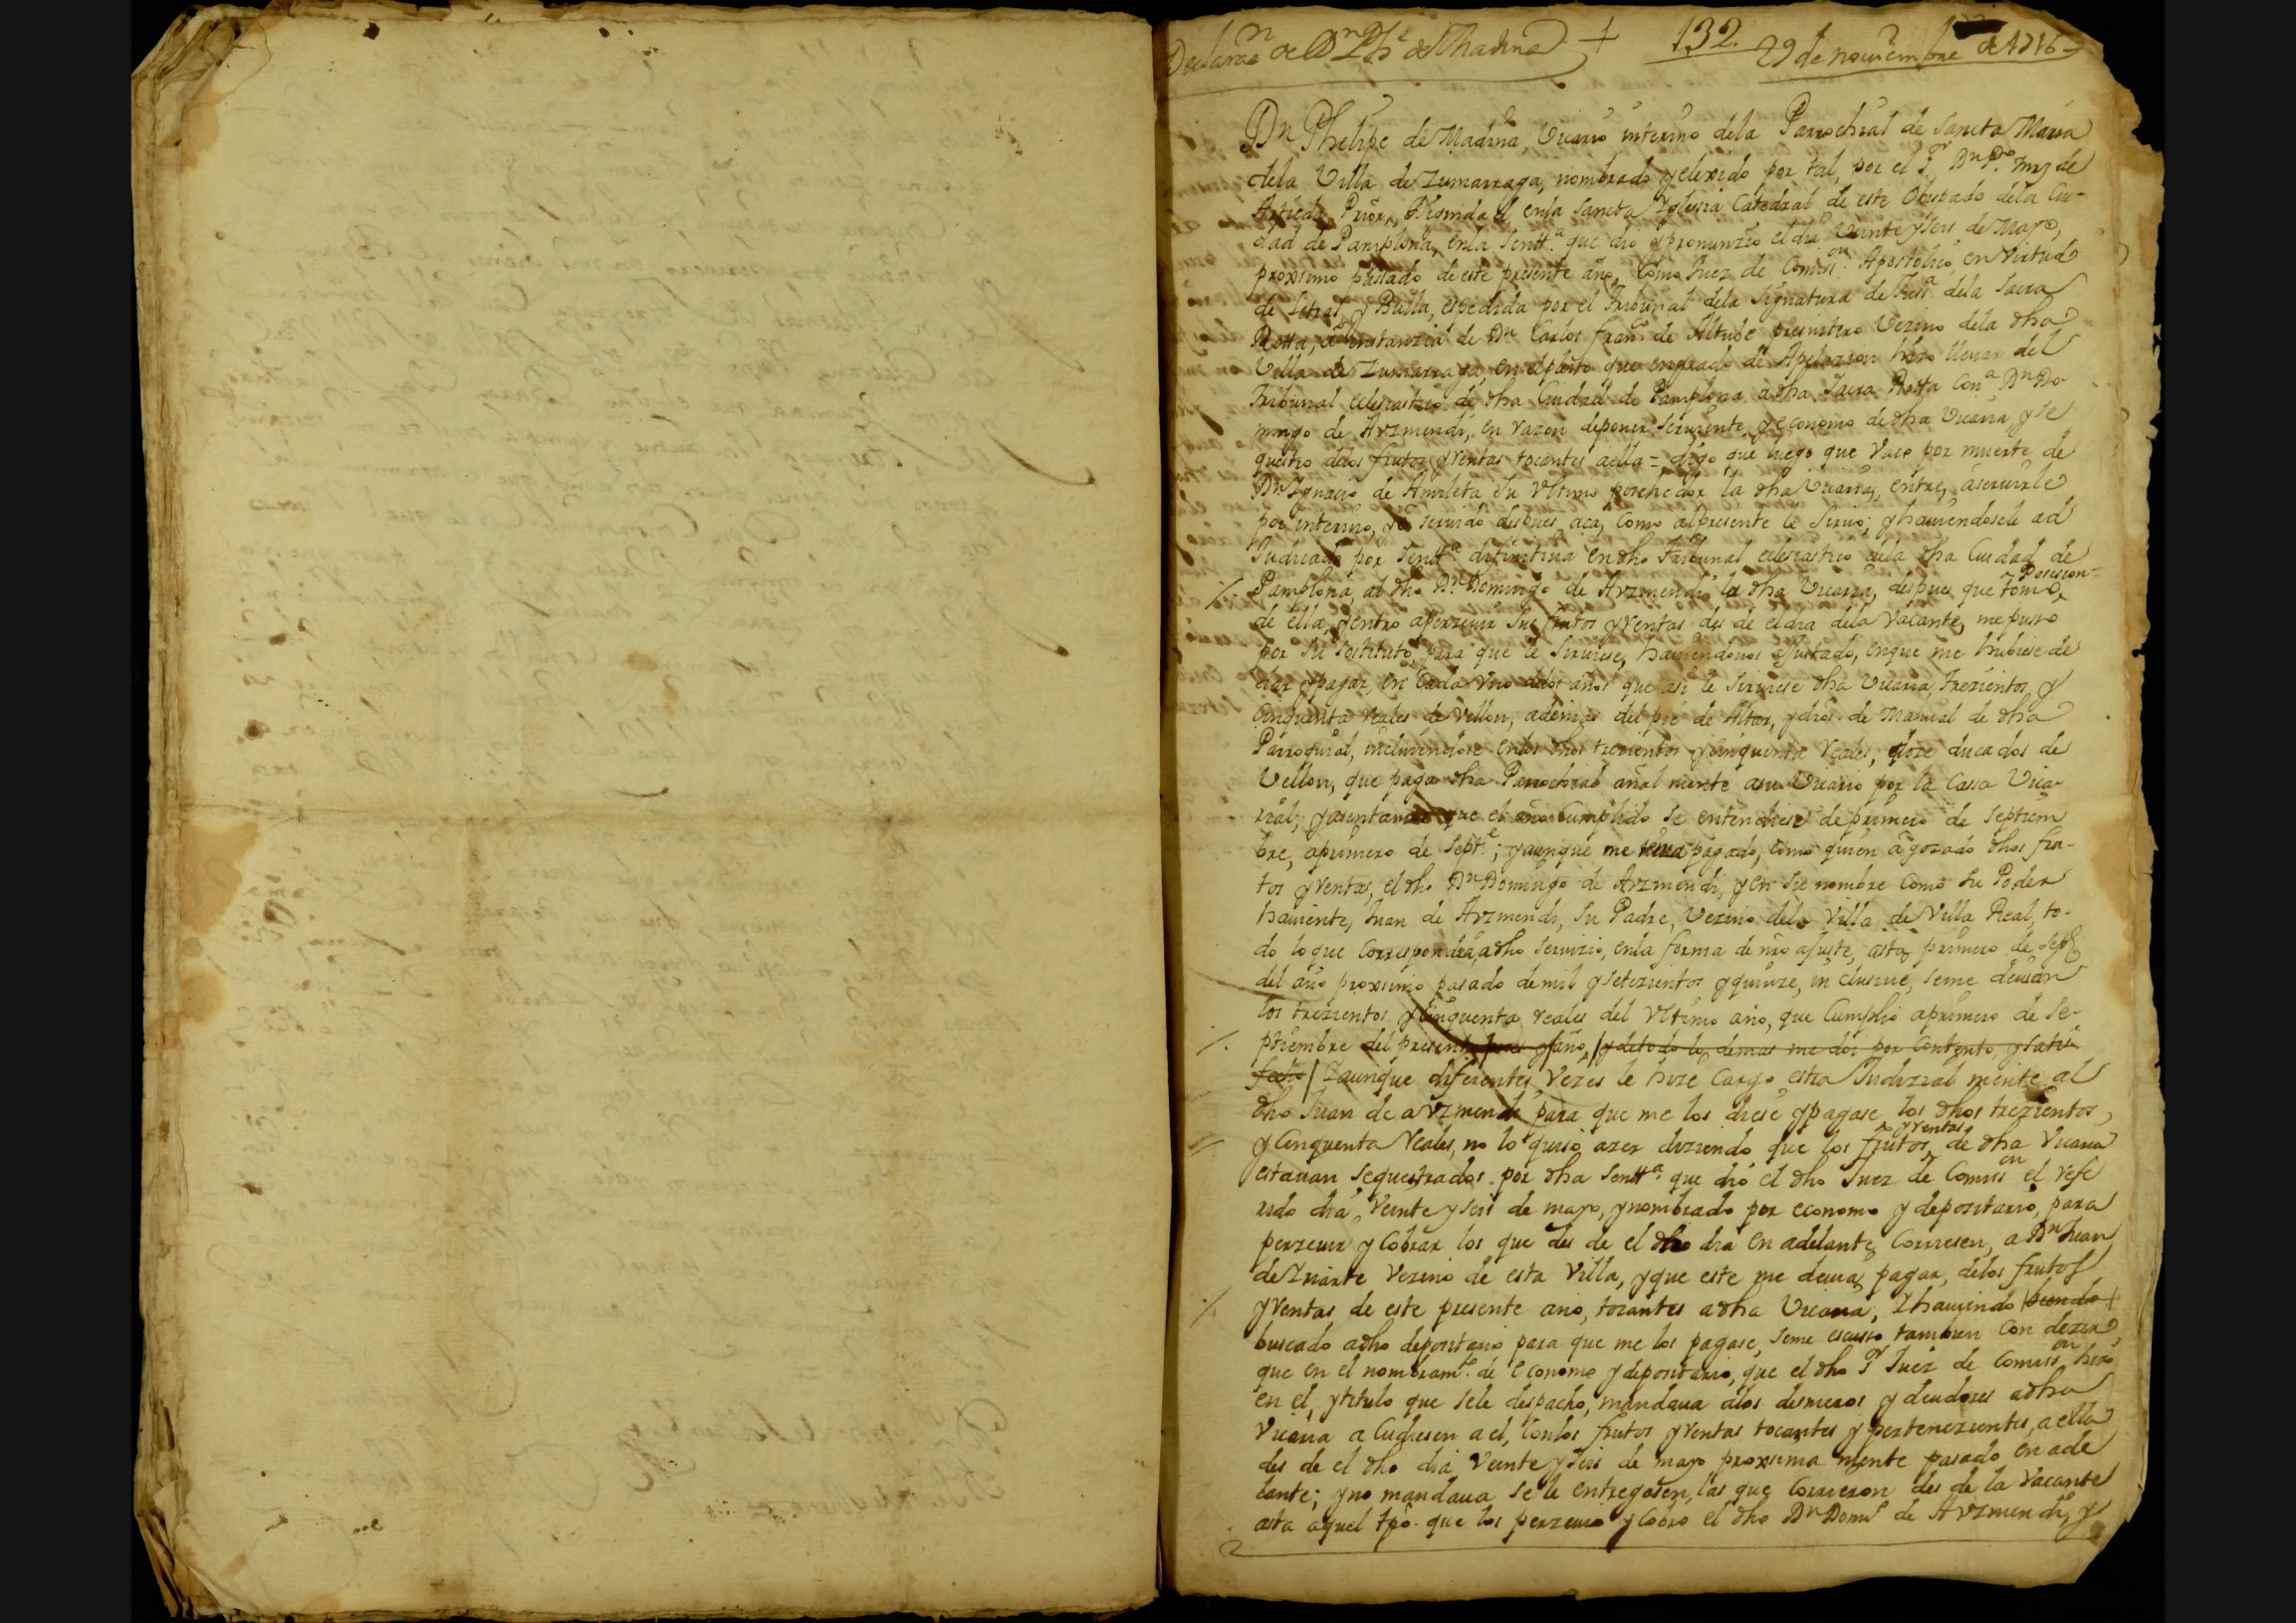 Declaraon de Dn Phe de Madina + 132. 29 de noviembre de 1716
Dn Phelipe de Madina, Vicario interino dela Parrochial de Sancta Maria
dela Villa de Zumarraga, nombrado y elexido por tal, por el Sr Dn Po. Frnz de
Artieda Prior, Dignidad enla Sancta Yglesia Catedral de este Obispado dela Ciu-
dad de Pamplona, enla Sentta. que dio y pronunzio el dia Veinte y seis de Mayo,
proximo passado de este presente año, Como Juez de Comison. Apostolico, en Virtud
de Letras, y Bulla, espedida por el Tribunal dela Signatura de Justa. dela Sacra
Rotta, a instanzia de Dn Carlos Franco de Altube presvitero Vezino dela dha
Villa de Zumarraga, en el pleito que en grado de Apelazion hizo llevar del
Tribunal eclesiastico de dha Ciudad de Pamplona, a dha Sacra Rotta Cona. Dn Do-
mingo de Arzmendi, en razon de poner Serviente, y economo de dha Vicaria, y se
questro delos frutos y rentas tocantes a ella = digo que luego que Vaco por muerte de
Dn Ygnacio de Amileta su Vltimo posehedor la dha Vicaria, entre, a servirle
por interino, y e servido despues aca, Como al presente le Sirvo; y haviendosele ad
Judicado por Sentta. difinitiva en dho Tribunal eclesiastico enla dha Ciudad de
Posesion =
%. Pamplona, al dho Dn. Domingo de Arzmendi la dha Vicaria, despues que tomo,
de ella, y entro a perzevir Sus frutos y rentas des de el dia dela Vacante, me pusso
por su sostituto para que le Sirviese, haviendonos ajustado, en que me hubiese de
dar y pagar, en Cada Vno delos años que asi le Sirviese dha Vicaria, trezientos y
Cinquenta reales de Vellon, ademas del pie de Altar, y dros. de Manual de dha
Parroquial, incluiendose enlos dhos trezientos y cinquenta reales, doze ducados de
Vellon, que paga dha Parrochial añal mente a su Vicario por la Cassa Vica-
rial; y asentamos que el año Cumplido se entendiese de primero de Septiem
bre, a primero de Septe.; y aunque me tiene pagado, como quien a gozado dhos fru-
tos y rentas, el dho Dn Domingo de Arzmendi, y en su nombre Como su Poder
haviente, Juan de Arzmendi, Su Padre, Vezino dela Villa de Villa Real, to-
do lo que Correspondia, a dho Servizio, enla forma de nro ajuste, asta primero de Septe
del año proximo pasado de mil y setezientos y quinze, in clusive, seme devian
los trezientos y Cinquenta reales del Vltimo año, que Cumplio a primero de Se-
%. ptiembre del presente mes y año, / y de todo lo demas me doi por Contento y satis
fecho / Y aunque diferentes Vezes le hize Cargo estra Judizial mente al
dho Juan de arzmendi para que me los diese y pagase los dhos trezientos,
y rentas
y Cinquenta reales, no lo quiso azer diziendo que los frutos, de dha Vicaria
estavan Sequestrados por dha Sentta. que dio el dho Juez de Comison el refe
rido dia, Veinte y seis de mayo, y nombrado por economo y depositario, para
perzevir y Cobrar los que des de el dho dia en adelante Corriesen, a Dn Juan
de Yriarte Vezino de esta Villa, y que este me devia pagar, delos frutos
%. y rentas de este presente año, tocantes a dha Vicaria, Y haviendo
buscado a dho depositario para que me los pagase, seme escuso tambien Con dezir,
que en el nombramto. de economo y depositario, que el dho Sr Juez de Comison hizo
en el, y titulo que sele despacho, mandava alos diesmeros y deudores a dha
Vicaria a Cudiesen a el, Conlos frutos y rentas tocantes y pertenezientes, a ella
des de el dho dia Veinte y seis de mayo proxima mente pasado en ade
lante; y no mandava se le entregasen, las que Corrieron des de la Vacante
asta aquel tpo. que los perzevio y Cobro el dho Dn Domo de Arzmendi, y